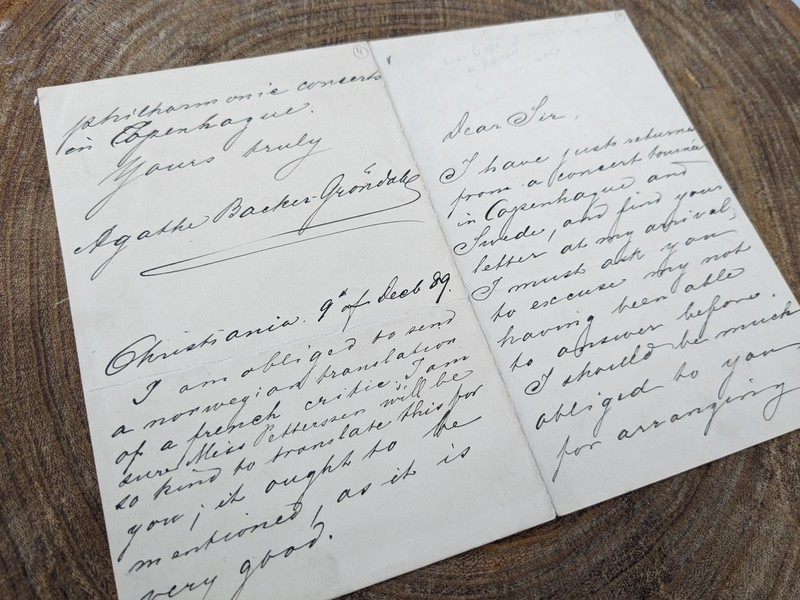 philharmonic concerts
in Copenhague.
Yours truly
Agathe Backer-Gröndahl
Christiania. 9th of Decb 89.
I am obliged to send
a norwegian translation
of a french critic; I am
sure Miss Petterssen will be
so kind to translate this for
you; it ought to be
mentioned, as it is
very good.
Dear Sir,
I have just returned
from a concert tournée
in Copenhague and
Swede, and find your
letter at my arrival,
I must ask you
to excuse my not
having been able
to answer before.
I should be much
obliged to you
for arranging